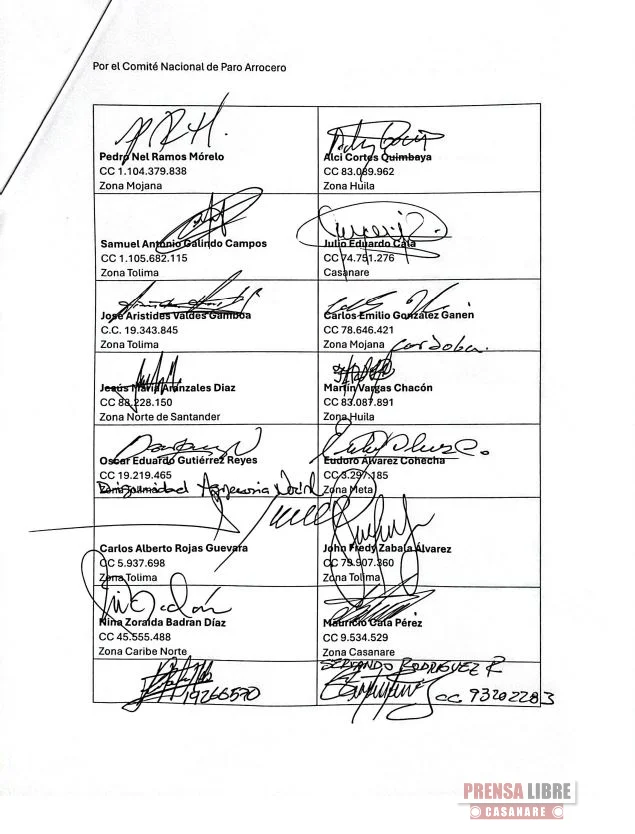 Por el Comité Nacional de Paro Arrocero
Pedro Nel Ramos Mórelo
CC 1.104.379.838
Zona Mojana
Alci Cortes Quimbaya
CC 83.089.962
Zona Huila
Samuel Antonio Galindo Campos
CC 1.105.682.115
Zona Tolima
Julio Eduardo Cala
CC 74.751.276
Casanare
José Aristides Valdes Gamboa
C.C. 19.343.845
Zona Tolima
Carlos Emilio González Ganen
CC 78.646.421
Zona Mojana Cordoba.
Jesús María Aranzales Diaz
CC 88.228.150
Zona Norte de Santander
Martin Vargas Chacón
CC 83.087.891
Zona Huila
Oscar Eduardo Gutiérrez Reyes
CC 19.219.465
Dignidad Agropecuaria Nacional
Eudoro Álvarez Cohecha
CC 3.297.185
Zona Meta
Carlos Alberto Rojas Guevara
CC 5.937.698
Zona Tolima
John Fredy Zabala Álvarez
CC 79.907.360
Zona Tolima
Nina Zoralda Badran Díaz
CC 45.555.488
Zona Caribe Norte
Mauricio Cala Pérez
CC 9.534.529
Zona Casanare
19266570
SERVANDO RODRIGUEZ R
CC 93202283
PRENSA LIBRE
CASANARE